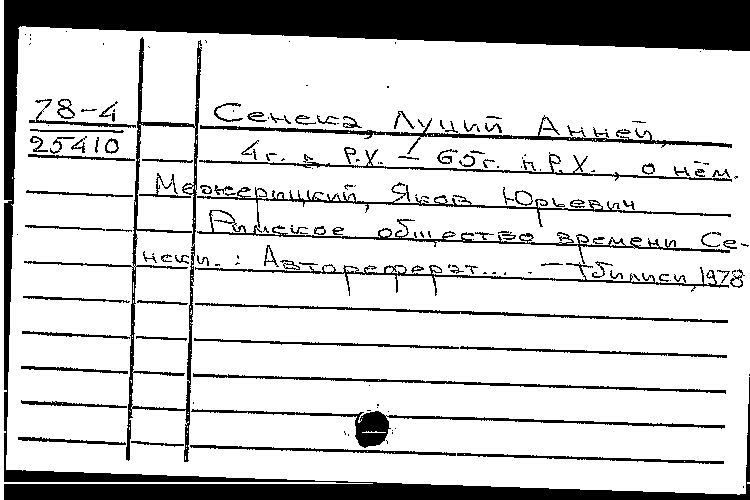 78-4
25410
Сенека, Луций Анней,
4 г. в Р.Х. — 65 г. н.Р.Х., о нём.
Межерицкий, Яков Юрьевич
Римское общество времени Се-
неки.: Автореферат... . — Тбилиси, 1978